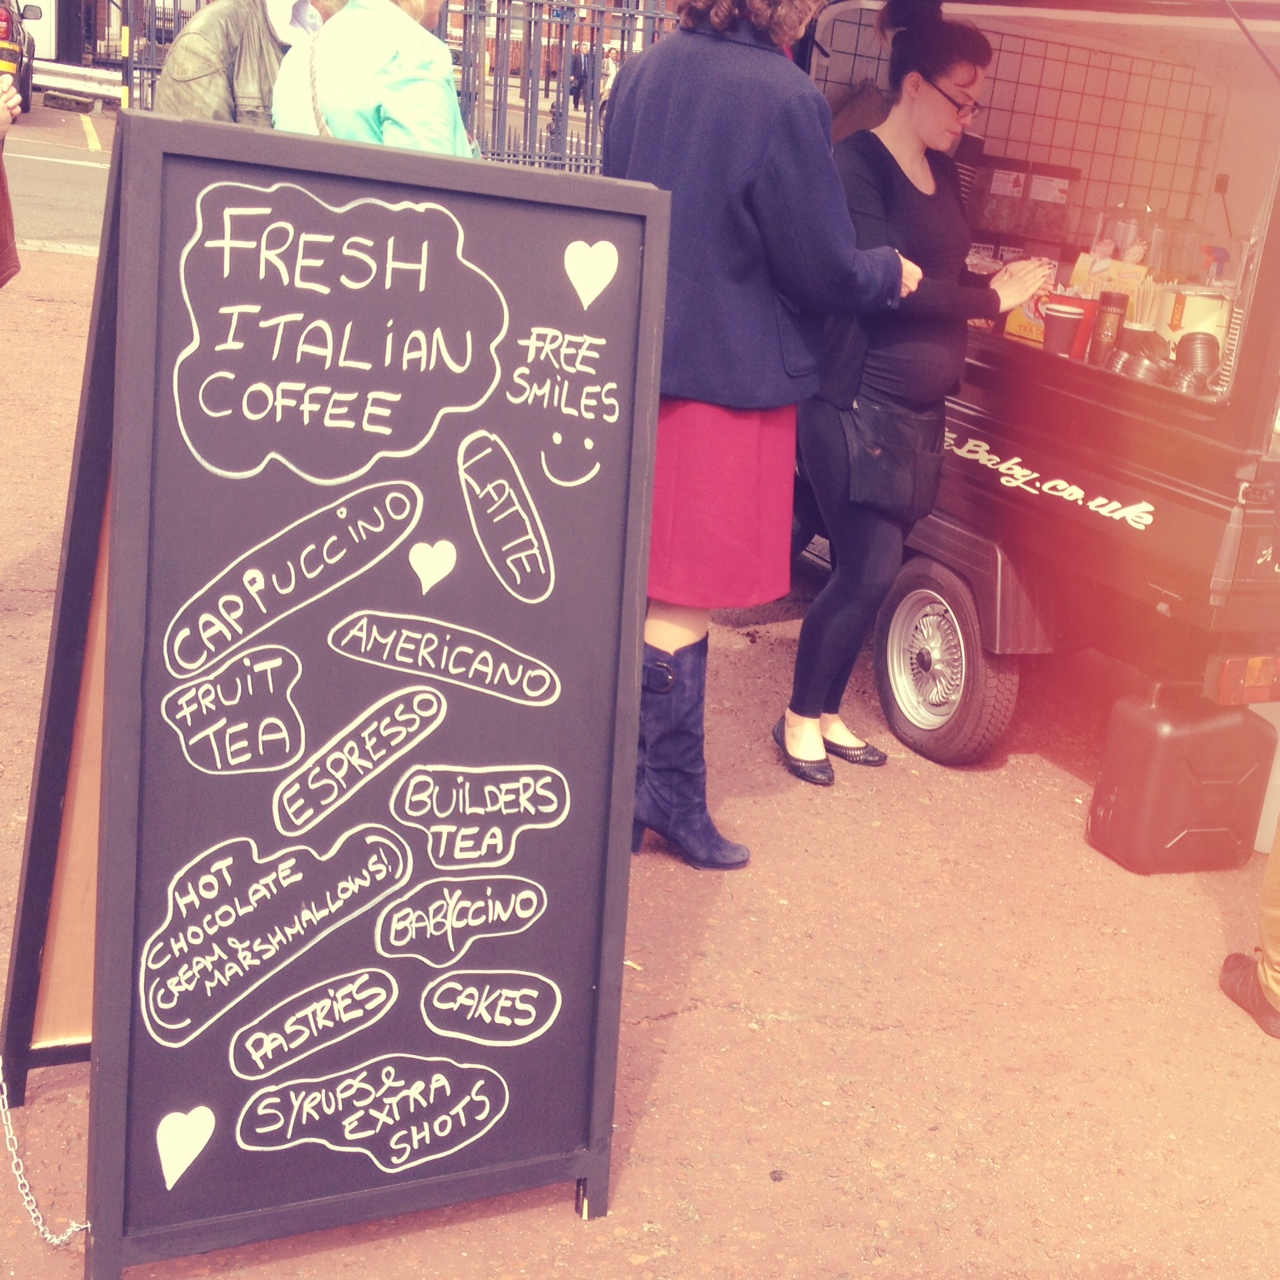 FRESH
ITALiAN
COFFEE
FREE
SMiLES
LATTE
CAPPUCCiNO
AMERiCANO
FRUiT
TEA
ESPRESSO
BUiLDERS
TEA
HOT
CHOCOLATE
(CREAM &
MARSHMALLOWS!)
BABYCCiNO
PASTRiES
CAKES
SYRUPS &
EXTRA
SHOTS
Baby.co.uk